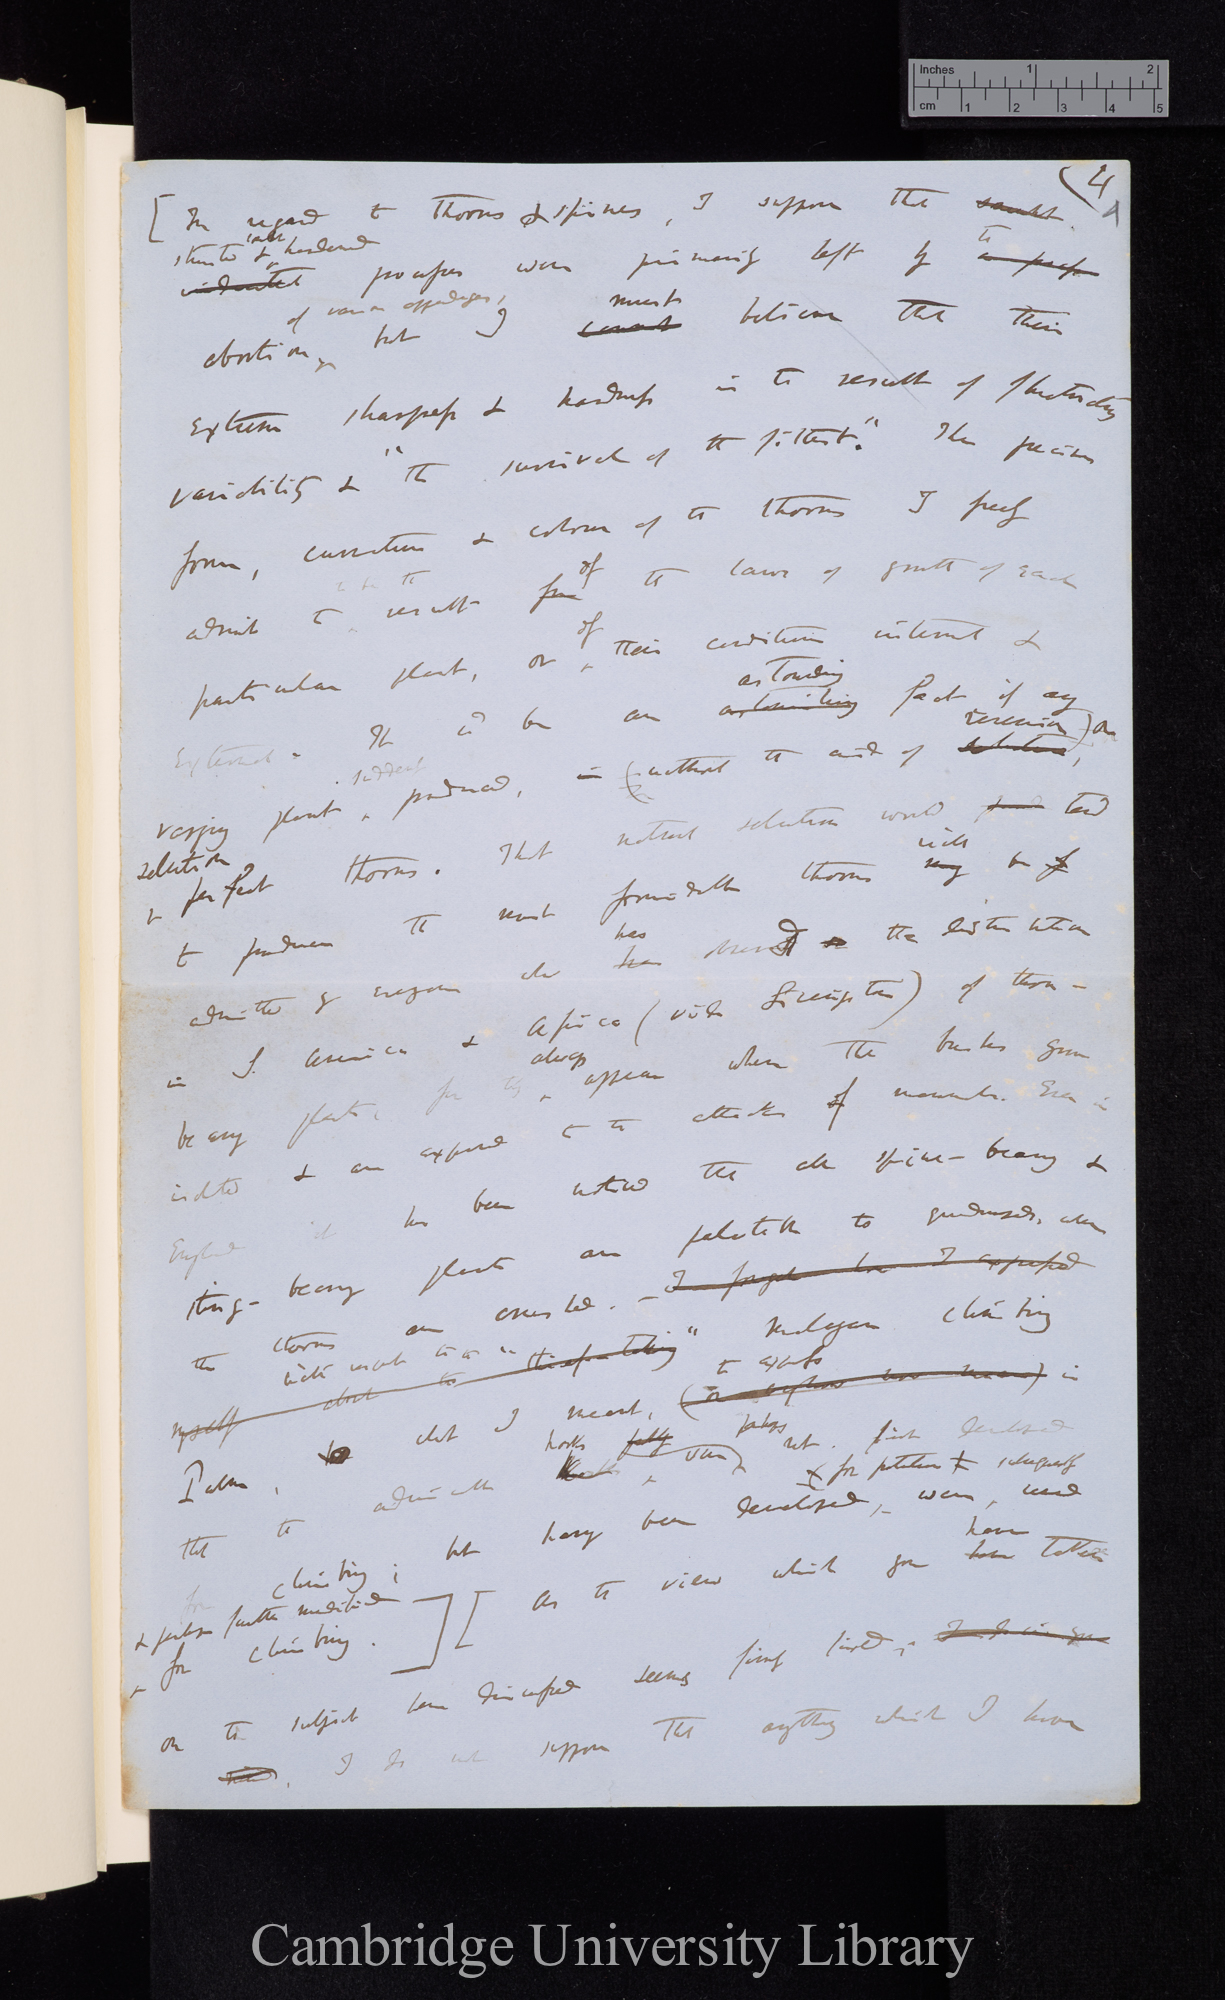 Inches 1 2
cm 1 2 3 4 5
(4
A
[In regard to thorns & spines, I suppose that
stunted & hardened
processes were primarily left by the
of various appendages;
abortion, but I must believe that their
extreme sharpness & hardness is the result of fluctuating
variability & "the survival of the fittest". The precise
form, curvature & colour of the thorns I freely
admit to be the result of the laws of growth of each
particular plant, or of their conditions internal &
external. It wd be an astounding fact if any
varying plant suddenly produced, (without the aid of reversion) or
selection
perfect thorns. That natural selection would tend
to produce the most formidable thorns will be
admitted by everyone who has observed the distribution
in S. America & Africa (vide Livingstone) of thorn-
bearing plants, for they always appear where the bushes grow
isolated & are exposed to the attacks of mammals. Even in
England it has been noticed that all spine-bearing &
sting-bearing plants are palatable to quadrupeds, when
the thorns are crushed. – I forget how I expressed
myself
with respect to the " Malayan climbing
Palm, what I meant to express is
that the admirable hooks were perhaps not first developed
for climbing; but having been developed for protection were subsequently used
& perhaps further modified
for climbing.] [As to view which you have taken
on the subject here discussed seems
I do not suppose that anything which I have
Cambridge University Library